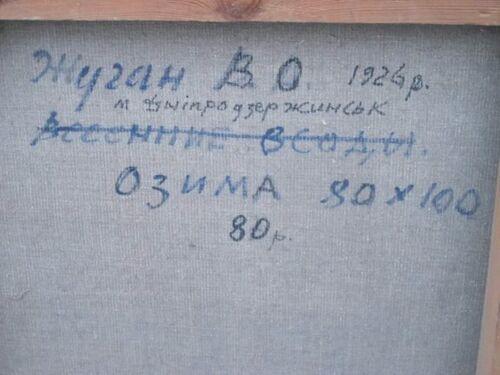 Жуган В.О. 1926р.
м Дніпродзержинськ
Весенние всходы.
ОЗИМА 80×100
80р.